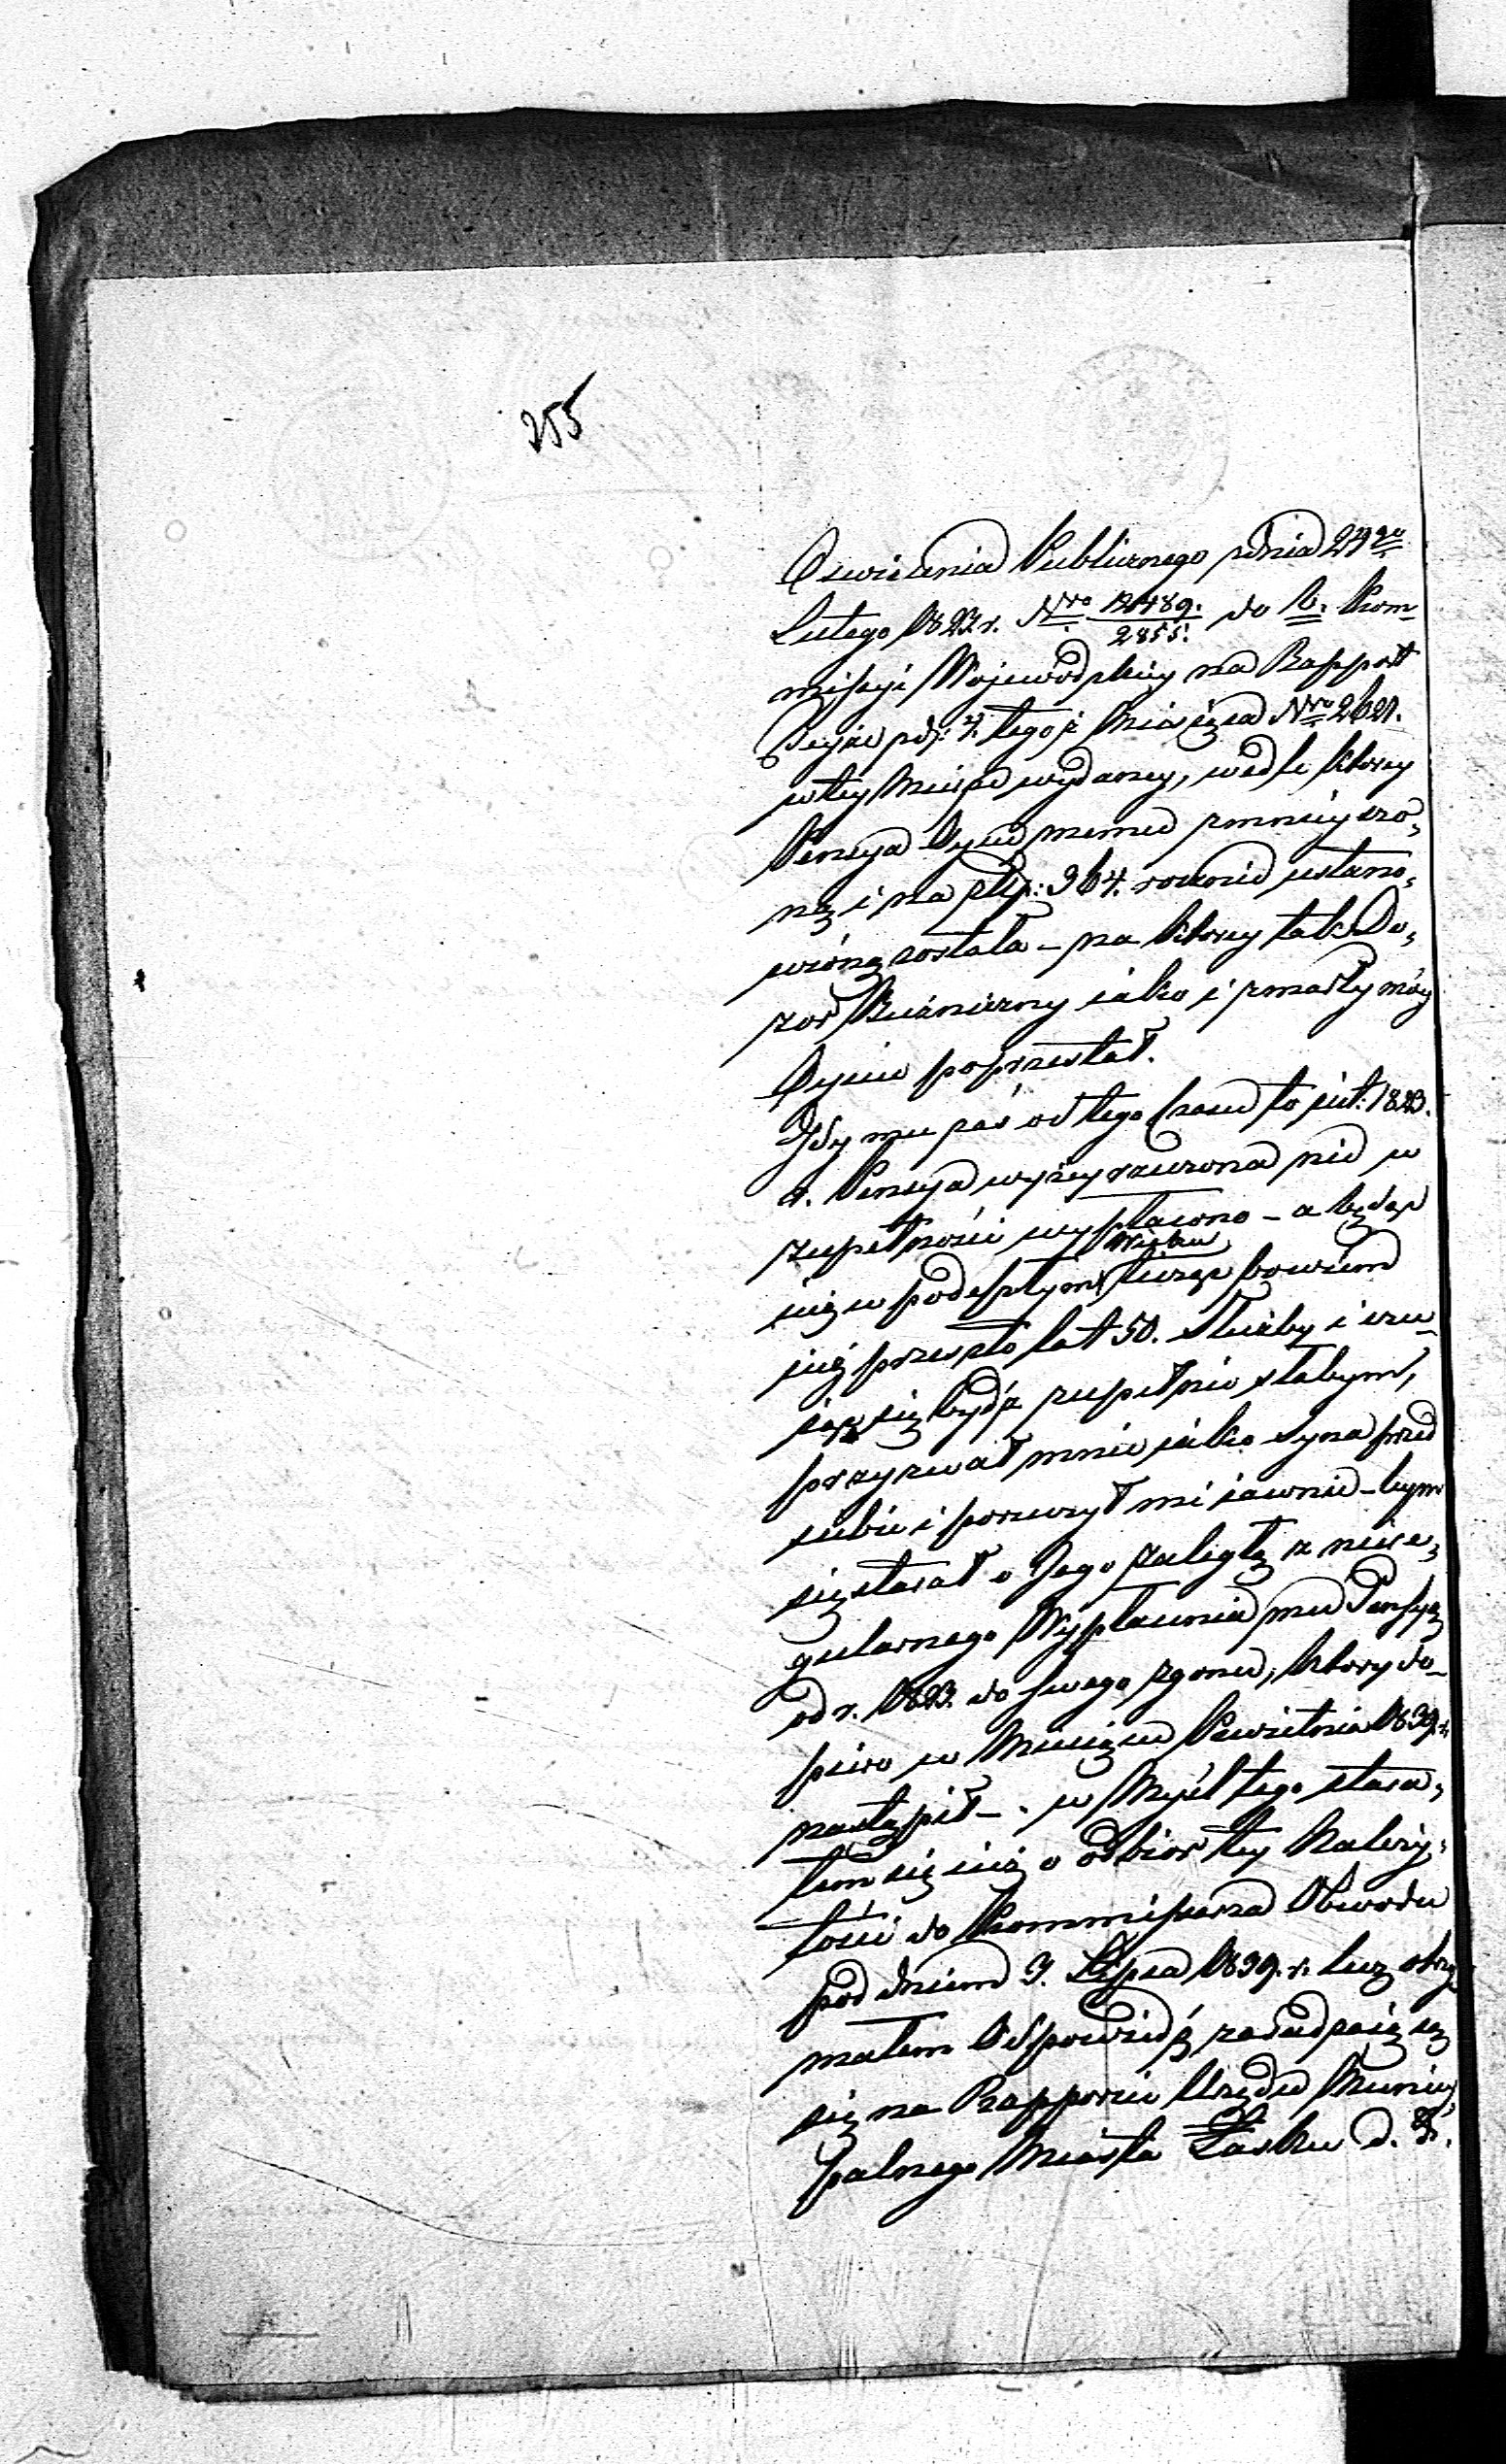 255
Oswiecenia Publicznego z dnia 27go
Lutego 1823 r. Nro 12489./2855. do b. Kom¬
missyi Wojewodzkiey na Rapport
Teyże pd: 7. tegoż Miesiąca Nro 2621.
w tey Mierze wydaney, wedle ktorey
Pensya Oycu memu zmnieyszo¬
ną i na złp: 364. rocznie ustano¬
wioną została – na ktorey tak Do¬
zor Bużniczny iako i zmarły móy
Oyciec poprzestał.
Gdy mu zaś od tego Czasu to jest: 1823.
r. Pensya wyżey rzeczona nie w
zupełności wypłacono – a będąc
iuż w podeszłym Wieku licząc bowiem
iuż przeszło lat 50. Służby i czu¬
iąc się bydź zupełnie słabym,
przyzwał mnie iako Syna przed
siebie i poruczył mi iawnie – bym
się starał o Jego zaległą z niere¬
gularnego Wypłacenia mu Pensyą
od r. 1823. do swego zgonu, ktory do¬
piero w Miesiącu Kwietniu 1839 r.
nastąpił –. w Myśl tego stara¬
łem się iuż o odbior tey Należy¬
tości do Kommissarza Obwodu
pod dniem 3. Lipca 1839. r. lecz otrzy
małem Odpowiedź zasadzaiącą
się na Rapporcie Urzędu Munici¬
palnego Miasta Łasku d. 8.